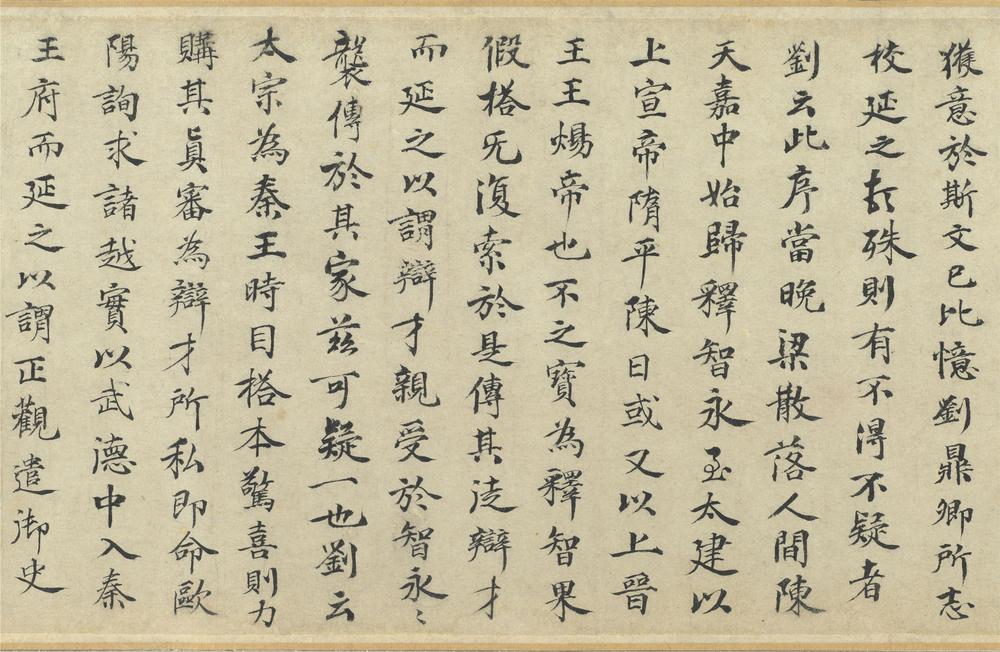 獲意於斯文已比憶劉鼎卿所志
校延之所殊則有不得不疑者
劉云此序當晚梁散落人間陳
天嘉中始歸釋智永至太建以
上宣帝隋平陳日或又以上晉
王王煬帝也不之寶為釋智果
假榻旡復索於是傳其徒辯才
而延之以謂辯才親受於智永〻
襲傳於其家茲可疑一也劉云
太宗為秦王時目榻本驚喜則力
購其眞審為辯才所私即命歐
陽詢求諸越實以武德中入秦
王府而延之以謂正觀遣御史